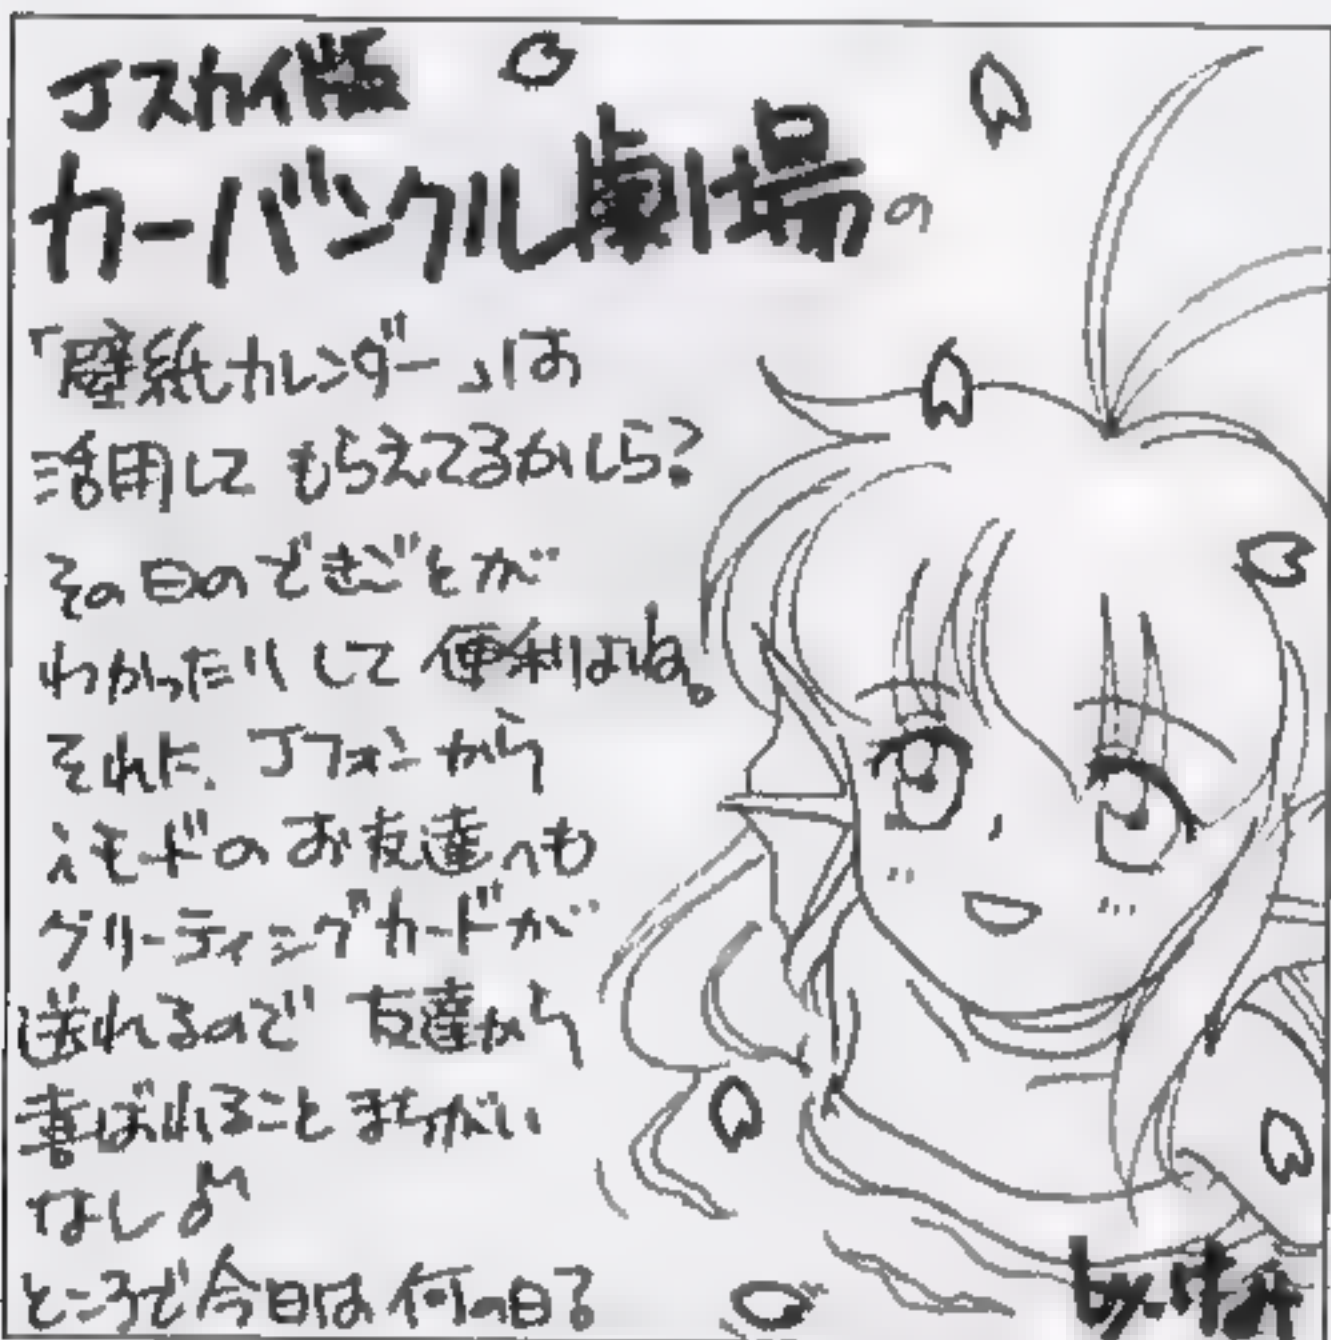 Jスカイ版
カーバンクル劇場の
「壁紙カレンダー」は
活用して もらえてるかしら?
その日のできごとが
わかったりして 便利よね。
それに、Jフォンから
iモードのお友達へも
グリーティングカードが
送れるので 友達から
喜ばれること まちがい
なし♪
ところで今日は何の日?
by.